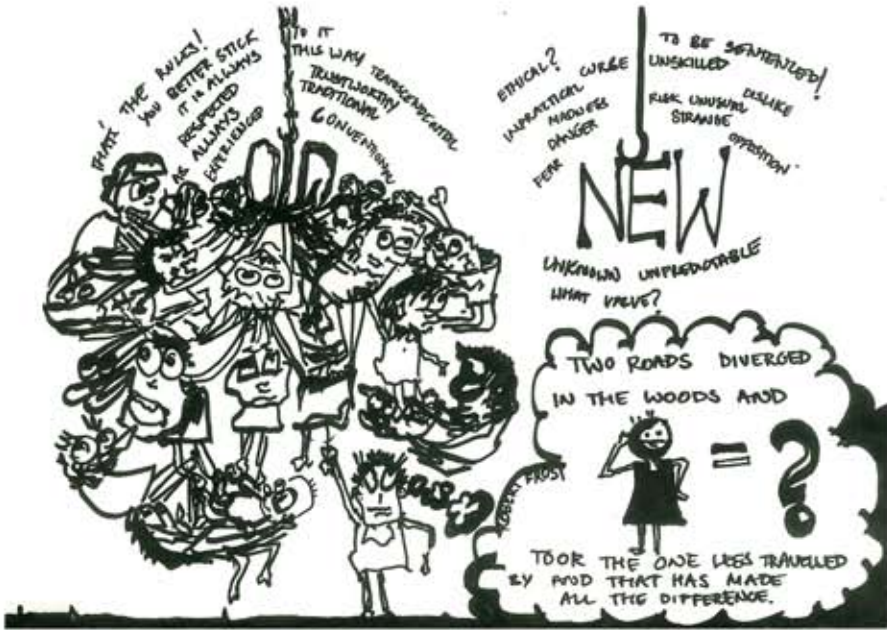 THATS' THE RULES!
YOU BETTER STICK
TO IT
IT IS ALWAYS
THIS WAY
RESPECTED
AS ALWAYS
EXPERIENCED
TRANSCENDENTAL
TRUSTWORTHY
TRADITIONAL
CONVENTIONAL
OLD
ETHICAL?
IMPRACTICAL CURSE
MADNESS
DANGER
FEAR
TO BE SENTENCED!
UNSKILLED
RISK UNUSUAL DISLIKE
STRANGE
OPPOSITION
NEW
UNKNOWN UNPREDICTABLE
WHAT VALUE?
TWO ROADS DIVERGED
IN THE WOODS AND
= ?
ROBERT FROST
TOOK THE ONE LESS TRAVELLED
BY AND THAT HAS MADE
ALL THE DIFFERENCE.